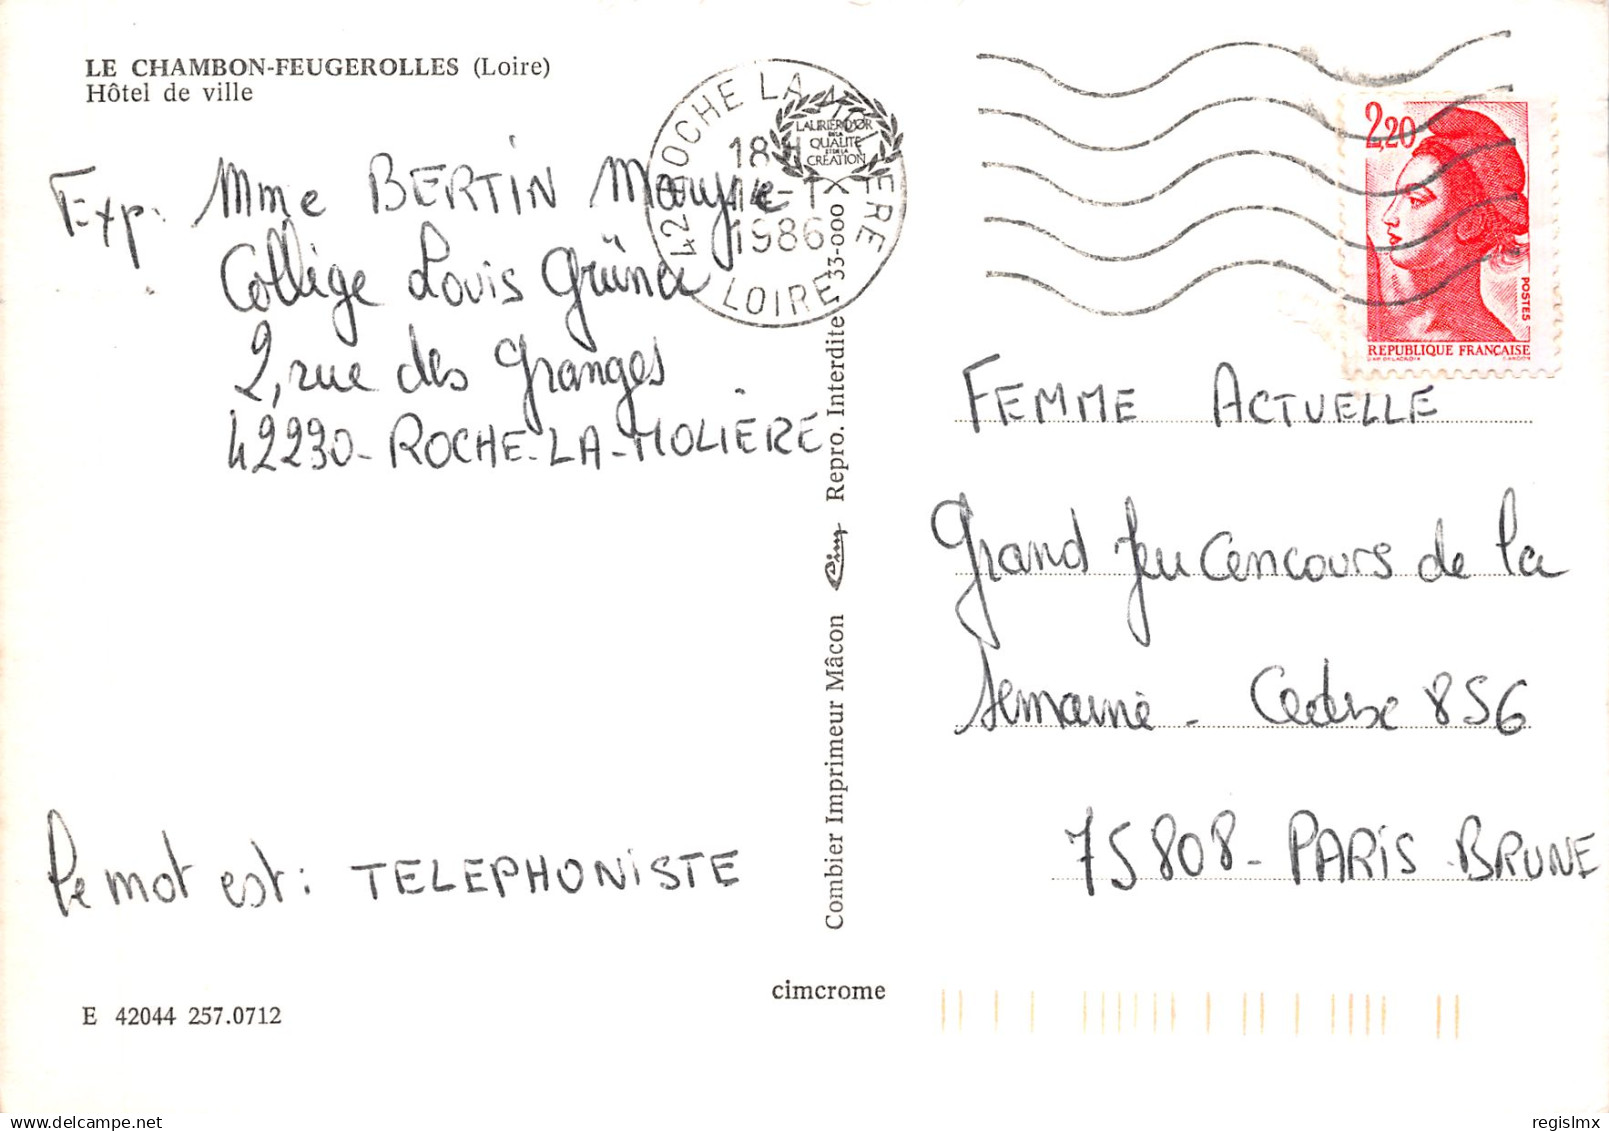 LE CHAMBON-FEUGEROLLES (Loire)
Hôtel de ville
Exp: Mme BERTIN Maryse
Collège Louis Grüner
2, rue des Granges
42230 - ROCHE-LA-MOLIERE
Le mot est : TELEPHONISTE
E 42044 257.0712
Combier Imprimeur Mâcon Cim Repro. Interdite 33-000
LAURIER D'OR
DE LA
QUALITÉ
ET DE LA
CRÉATION
cimcrome
42230 ROCHE LA MOLIERE
18 H
14-1
1986
LOIRE
2,20
POSTES
REPUBLIQUE FRANÇAISE
FEMME ACTUELLE
Grand Jeu Concours de la
semaine - Cedex 856
75808 - PARIS BRUNE
regislmx
delcampe.net